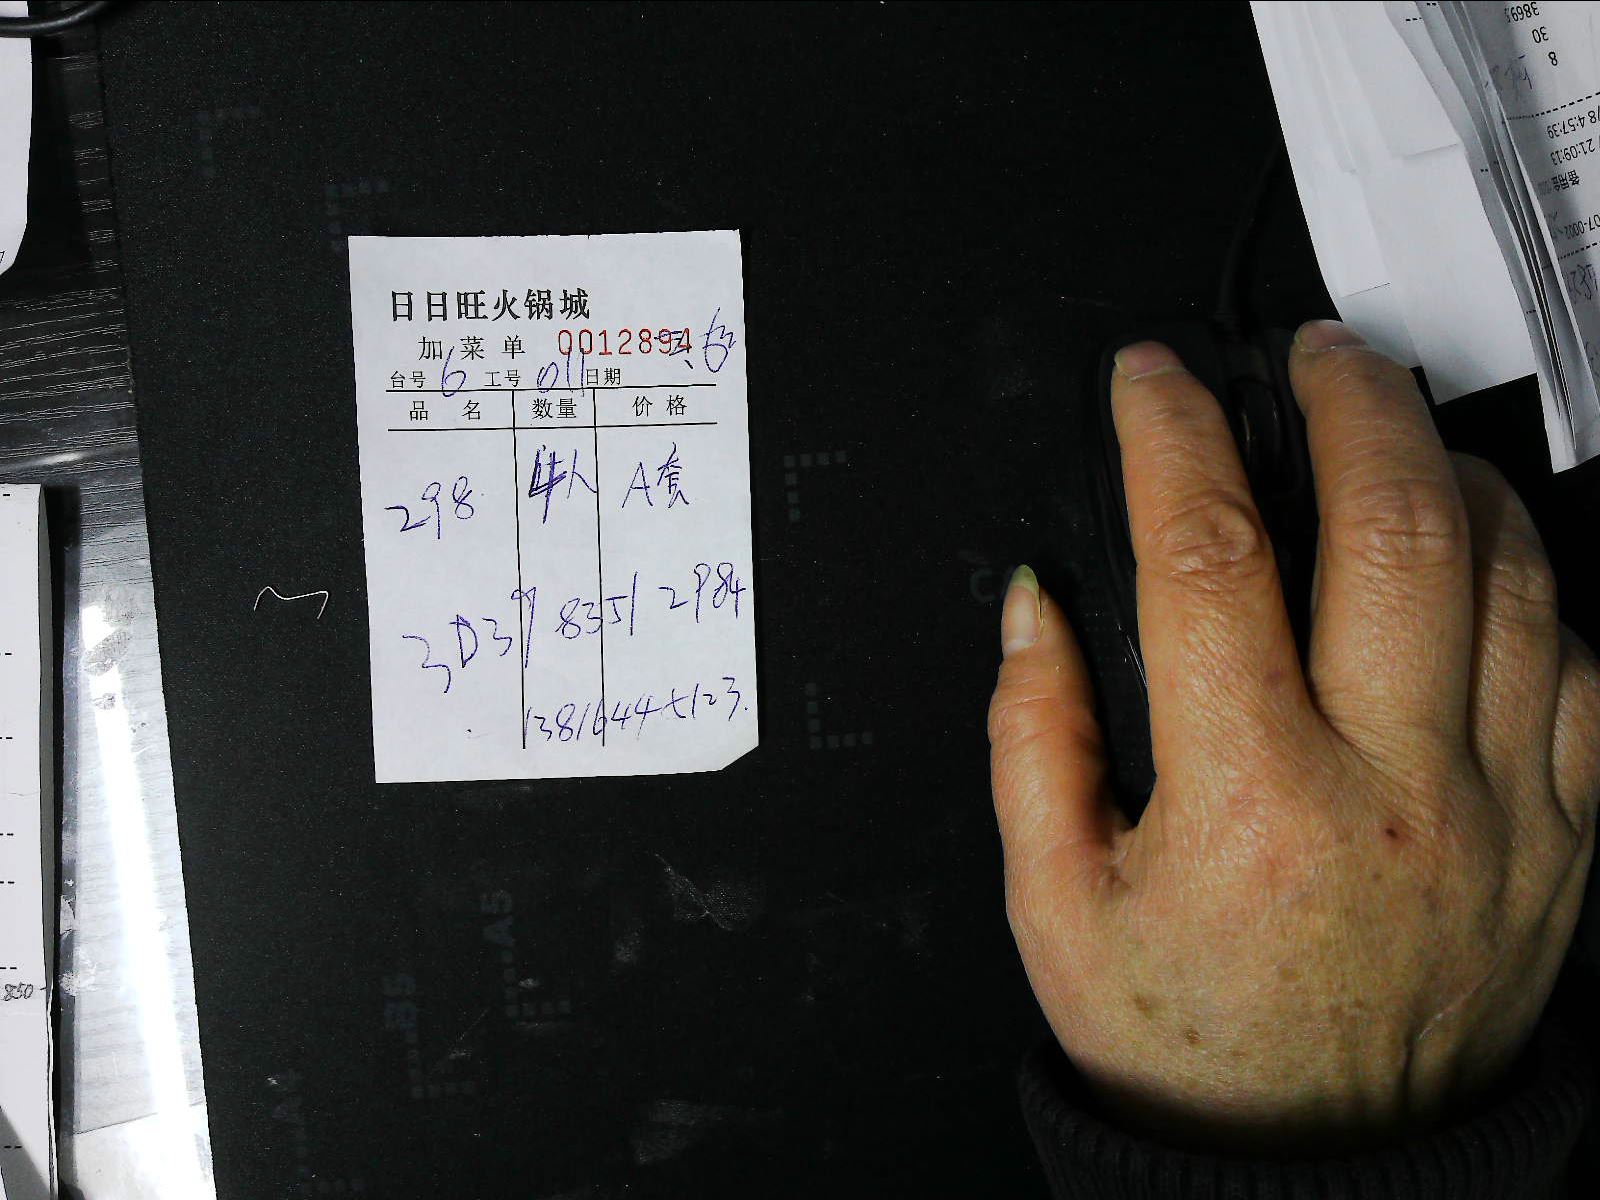 日日旺火锅城
加菜单 0012894
台号 6 工号 011 日期
品 名 数量 价 格
298 4人 A套
3D39 8351 2984
13816445123.
3869.5
30
8
/8 4:57:39
21:09:13
备用金
07-0002
850